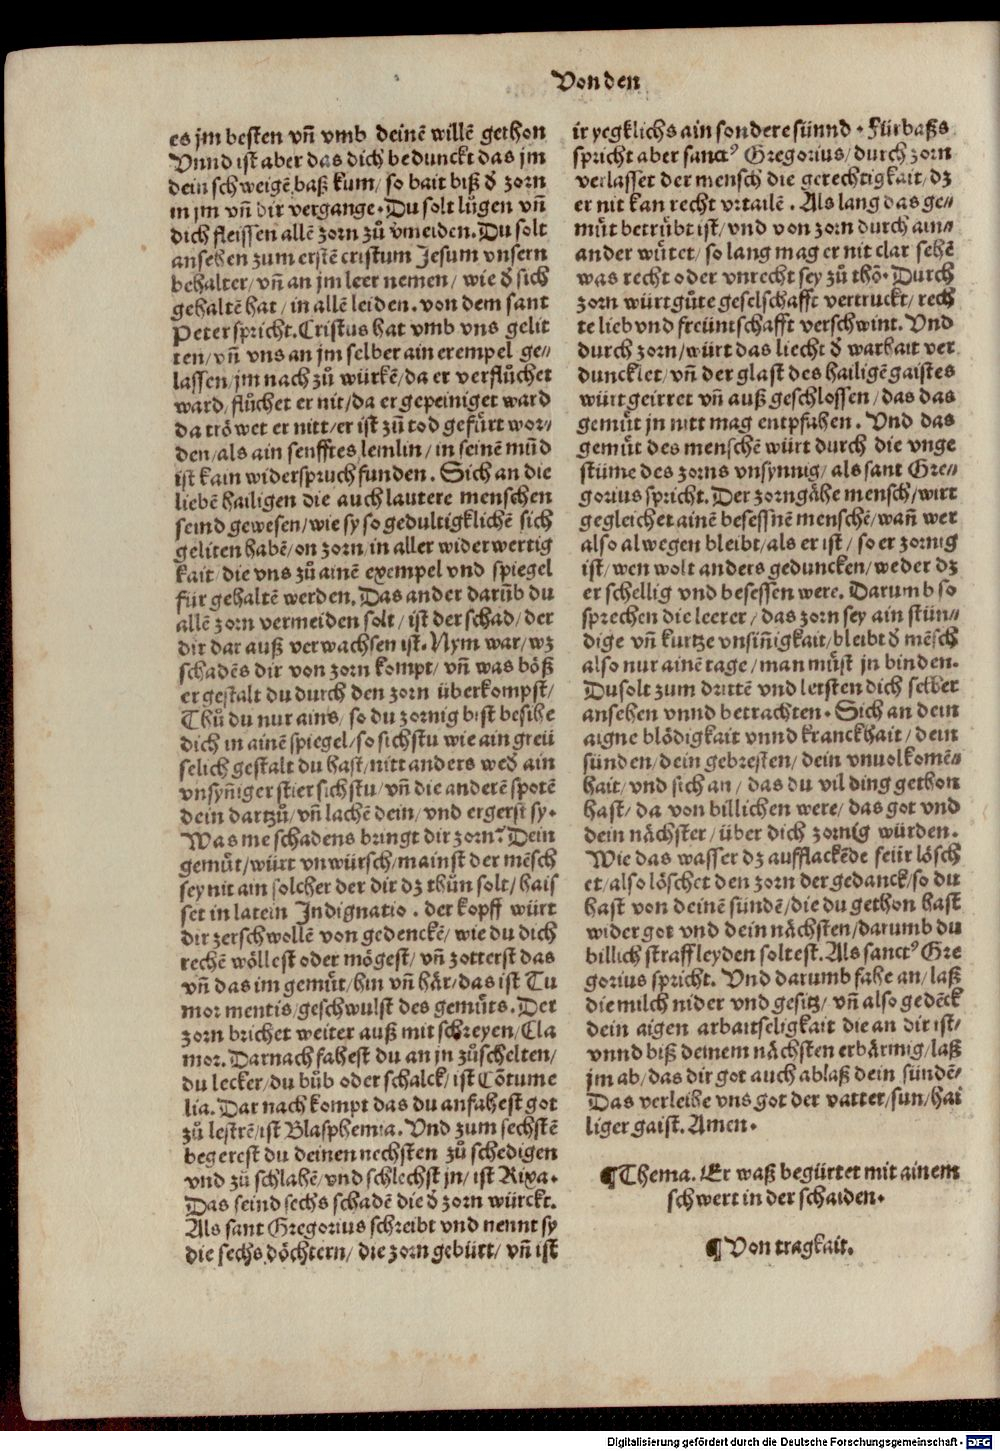 Von den
es jm besten vñ vmb deinē willē gethon
Vnnd ist aber das dich bedunckt das jm
dein schweigē baß kum/ so bait biß d̄ zorn
in jm vñ dir vergange. Du solt lůgen vñ
dich fleissen allē zorn zů vmeiden. Du solt
ansehen zum erstē cristum Jesum vnsern
behalter/ vñ an jm leer nemen/ wie d̄ sich
gehaltē hat/ in allē leiden. von dem sant
Peter spricht. Cristus hat vmb vns gelit
ten/ vñ vns an jm selber ain exempel ge⸗
lassen/ jm nach zů würkē/ da er verflůchet
ward/ flůchet er nit/ da er gepeiniget ward
da tröwet er nitt/ er ist zů tod gefürt wor⸗
den/ als ain senfftes lemlin/ in seinē mūd
ist kain widerspruch funden. Sich an die
liebē hailigen die auch lautere menschen
seind gewesen/ wie sy so gedultigklichē sich
geliten habē/ on zorn/ in aller widerwertig
kait/ die vns zů ainē exempel vnd spiegel
für gehaltē werden. Das ander darūb du
allē zorn vermeiden solt/ ist der schad/ der
dir dar auß verwachsen ist. Nym war/ wz
schadēs dir von zorn kompt/ vñ was böß
er gestalt du durch den zorn überkompst/
Thů du nur ains/ so du zornig bist besihe
dich in ainē spiegel/ so sichstu wie ain greü
selich gestalt du hast/ nitt anders wed̄ ain
vnsyñiger stier sichstu/ vñ die anderē spotē
dein dartzů/ vñ lachē dein/ vnd ergerst sy.
Was me schadens bringt dir zorn? Dein
gemüt/ würt vnwürsch/ mainst der mēsch
sey nit ain solcher der dir dz thůn solt/ hais
set in latein Indignatio. der kopff würt
dir zerschwollē von gedenckē/ wie du dich
rechē wöllest oder mögest/ vñ zotterst das
vñ das im gemüt/ hin vñ här/ das ist Tu
mor mentis/ geschwulst des gemüts. Der
zorn brichet weiter auß mit schreyen/ Cla
mor. Darnach fahest du an jn zůschelten/
du lecker/ du bůb oder schalck/ ist Cōtume
lia. Dar nach kompt das du anfahest got
zů lestrē/ ist Blasphemia. Vnd zum sechstē
begerest du deinen nechsten zů schedigen
vnd zů schlahē/ vnd schlechst jn/ ist Rixa.
Das seind sechs schadē die d̄ zorn würckt.
Als sant Gregorius schreibt vnd nennt sy
die sechs döchtern/ die zorn gebürt/ vñ ist
ir yegklichs ain sondere sünnd. Fürbaßs
spricht aber sanctꝰ Gregorius/ durch zorn
verlasset der mensch die gerechtigkait/ dz
er nit kan recht vrtailē. Als lang das ge⸗
müt betrübt ist/ vnd von zorn durch ain⸗
ander wütet/ so lang mag er nit clar sehē
was recht oder vnrecht sey zů thō. Durch
zorn würt gůte geselschafft vertruckt/ rech
te lieb vnd freüntschafft verschwint. Vnd
durch zorn/ würt das liecht d̄ warhait ver
duncklet/ vñ der glast des hailigē gaistes
würt geirret vñ auß geschlossen/ das das
gemüt jn nitt mag entpfahen. Vnd das
gemüt des menschē würt durch die vnge
stüme des zorns vnsynnig/ als sant Gre⸗
gorius spricht. Der zorngähe mensch/ wirt
gegleichet ainē besessnē menschē/ wañ wer
also alwegen bleibt/ als er ist/ so er zornig
ist/ wen wolt anders geduncken/ weder dz
er schellig vnd besessen were. Darumb so
sprechen die leerer/ das zorn sey ain stün⸗
dige vñ kurtze vnsiñigkait/ bleibt d̄ mēsch
also nur ainē tage/ man müst jn binden.
Du solt zum drittē vnd letsten dich selber
ansehen vnnd betrachten. Sich an dein
aigne blödigkait vnnd kranckhait/ dein
sünden/ dein gebresten/ dein vnuolkomē⸗
hait/ vnd sich an/ das du vil ding gethon
hast/ da von billichen were/ das got vnd
dein nächster/ über dich zornig würden.
Wie das wasser dz aufflackēde feür lösch
et/ also löschet den zorn der gedanck/ so du
hast von deinē sündē/ die du gethon hast
wider got vnd dein nächsten/ darumb du
billich straff leyden soltest. Als sanctꝰ Gre
gorius spricht. Vnd darumb fahe an/ laß
die milch nider vnd gesitz/ vñ also gedēck
dein aigen arbaitseligkait die an dir ist/
vnnd biß deinem nächsten erbärmig/ laß
jm ab/ das dir got auch ablaß dein sündē⸗
Das verleihe vns got der vatter/ sun/ hai
liger gaist. Amen.
¶Thema. Er waß begürtet mit ainem
schwert in der schaiden.
¶Von tragkait.
Digitalisierung gefördert durch die Deutsche Forschungsgemeinschaft - DFG